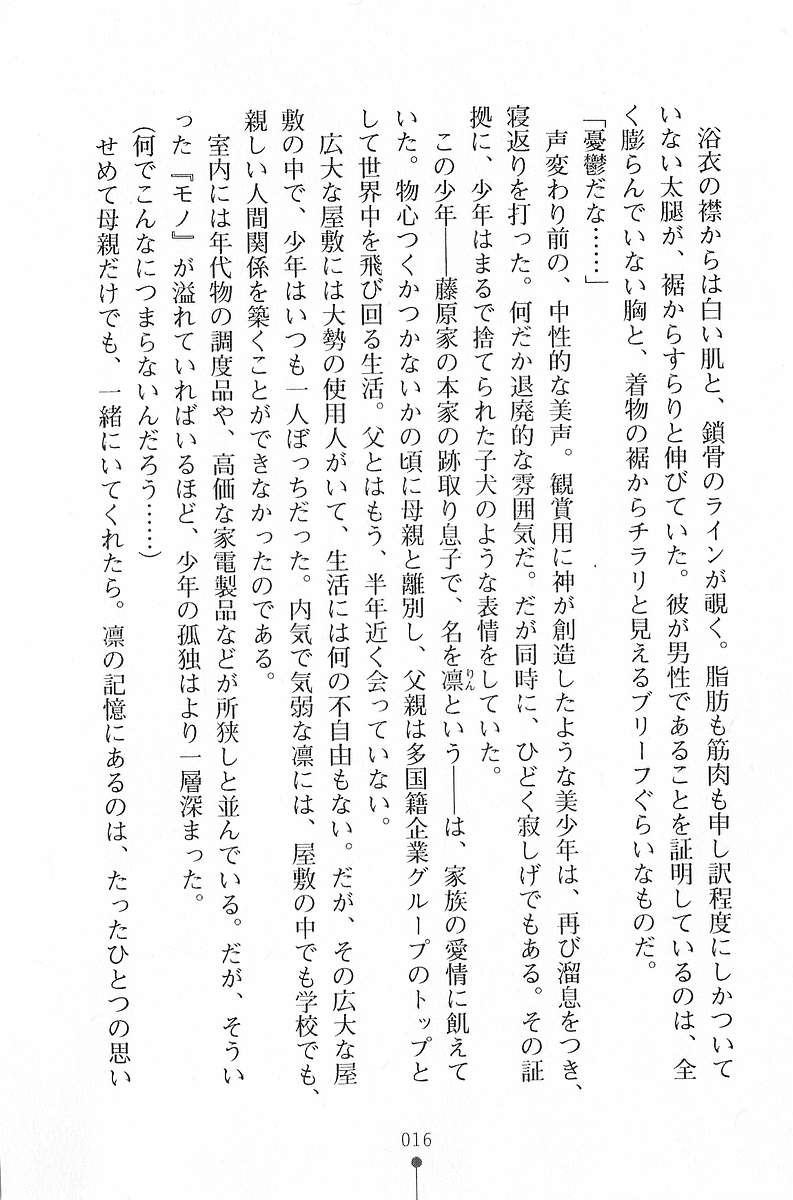 浴衣の襟からは白い肌と、鎖骨のラインが覗く。脂肪も筋肉も申し訳程度にしかついて
いない太腿が、裾からすらりと伸びていた。彼が男性であることを証明しているのは、全
く膨らんでいない胸と、着物の裾からチラリと見えるブリーフぐらいなものだ。
「憂鬱だな……」
声変わり前の、中性的な美声。観賞用に神が創造したような美少年は、再び溜息をつき、
寝返りを打った。何だか退廃的な雰囲気だ。だが同時に、ひどく寂しげでもある。その証
拠に、少年はまるで捨てられた子犬のような表情をしていた。
この少年――藤原家の本家の跡取り息子で、名を凛りんという――は、家族の愛情に飢えて
いた。物心つくかつかないかの頃に母親と離別し、父親は多国籍企業グループのトップと
して世界中を飛び回る生活。父とはもう、半年近く会っていない。
広大な屋敷には大勢の使用人がいて、生活には何の不自由もない。だが、その広大な屋
敷の中で、少年はいつも一人ぼっちだった。内気で気弱な凛には、屋敷の中でも学校でも、
親しい人間関係を築くことができなかったのである。
室内には年代物の調度品や、高価な家電製品などが所狭しと並んでいる。だが、そうい
った『モノ』が溢れていればいるほど、少年の孤独はより一層深まった。
(何でこんなにつまらないんだろう……)
せめて母親だけでも、一緒にいてくれたら。凛の記憶にあるのは、たったひとつの思い
016